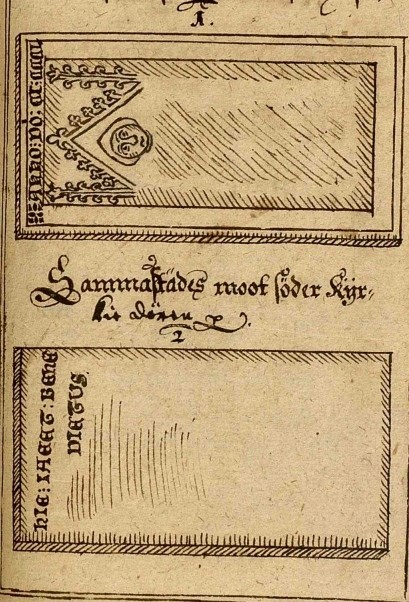 1.
ANNO: DO: M: CCCCL
Sammastädes moot söder Kÿr=
kie dören
2
HIC: IACET: BENE
DICTUS